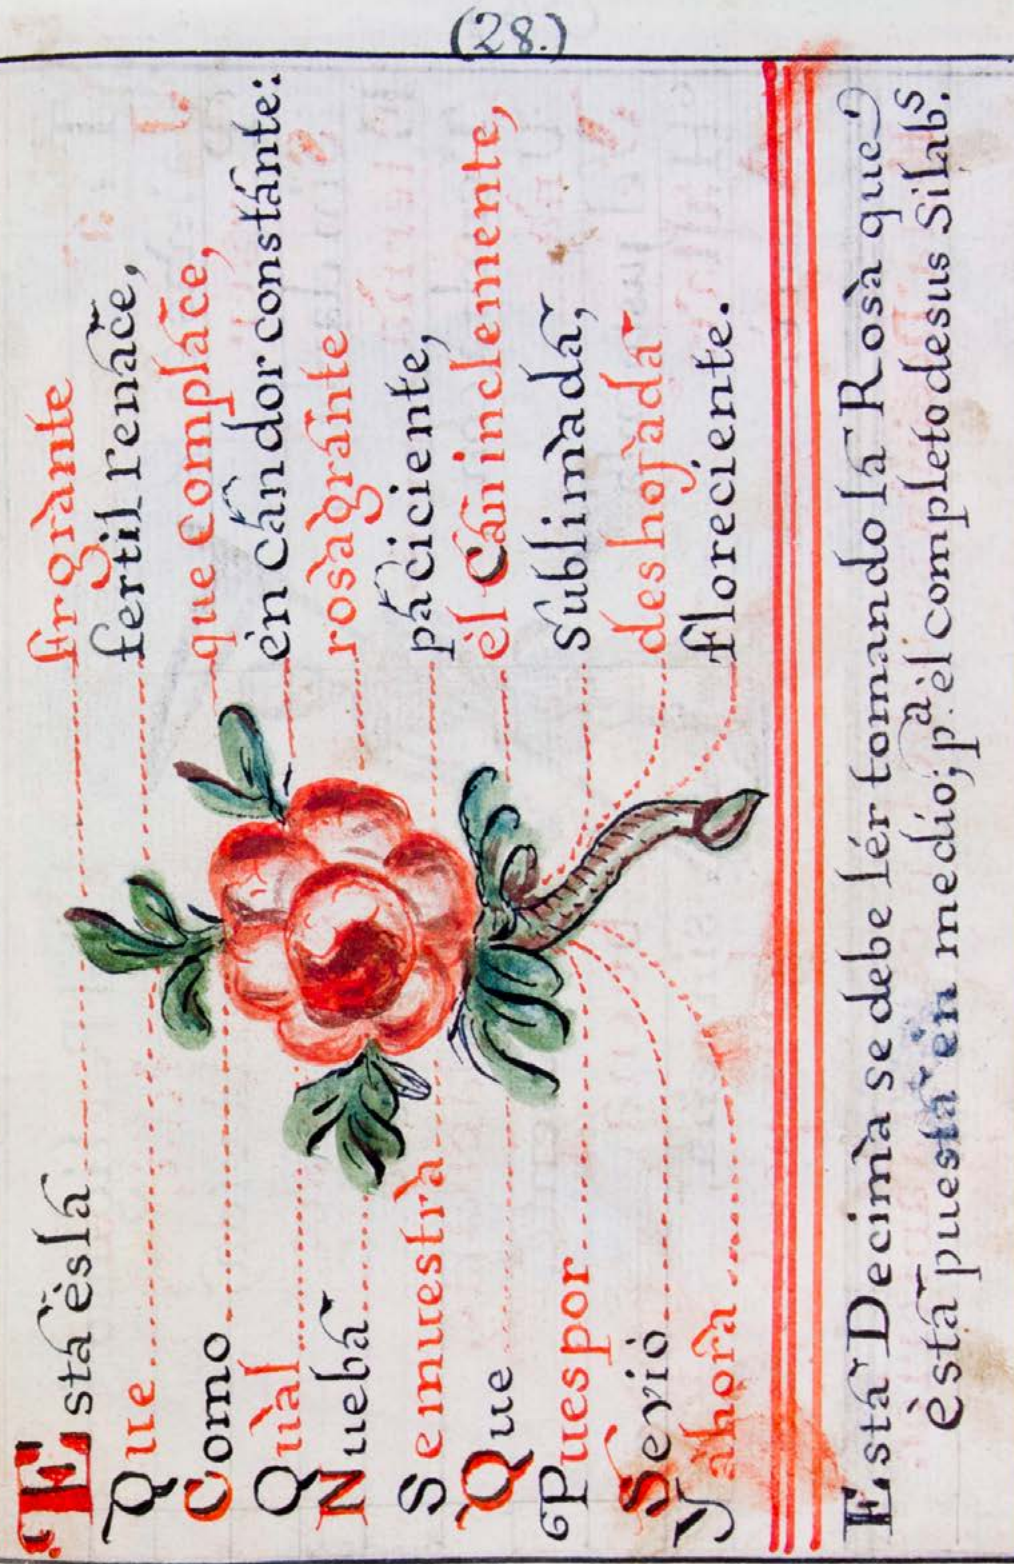 (28.)
Esta ès la frgrante
Que fertil renace,
Como que complace,
Qual èn candor constante:
Nueba rosagrante
Se muestra paciciente,
Que èl Can inclemente,
Pues por sublimada,
Se viò deshojada
Y ahora floreciente.
Esta Decima se debe lér tomando la Rosa que
èsta puesta èn medio; pª. èl completo de sus Silabˢ.